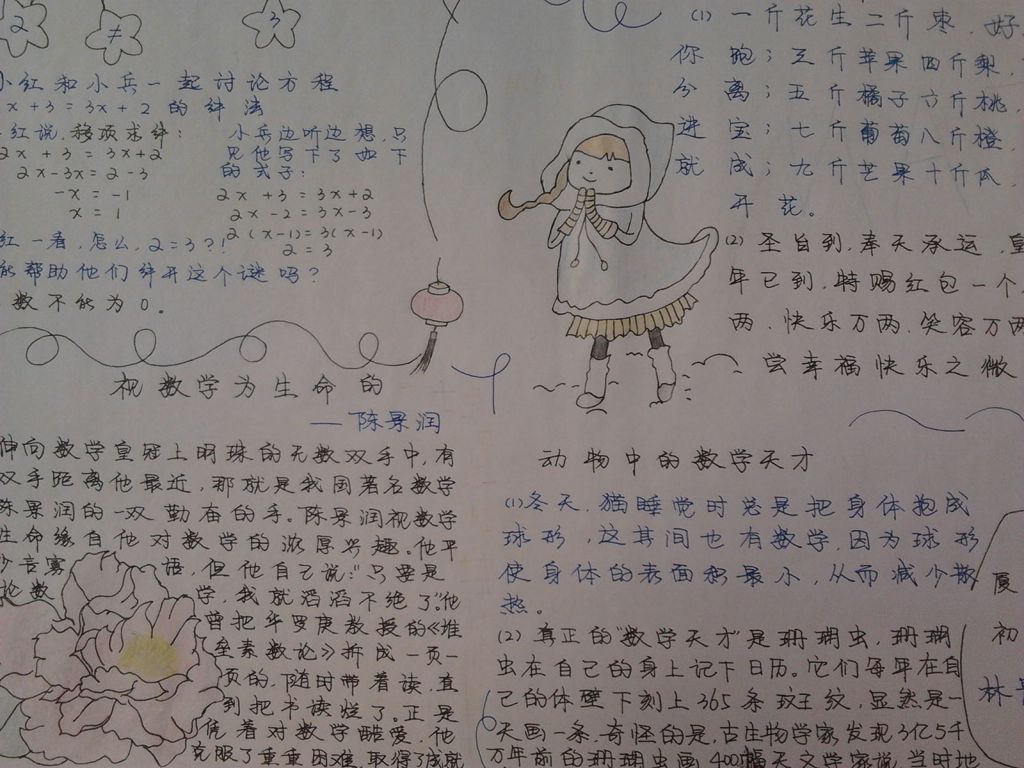 2
≠
3
小红和小兵一起讨论方程
x+3=3x+2的解法
红说,移项求解:
2x+3=3x+2
2x-3x=2-3
-x=-1
x=1
小兵边听边想,只
见他写下了如下
的式子:
2x+3=3x+2
2x-2=3x-3
2(x-1)=3(x-1)
2=3
红一看,怎么,2=3?!
能帮助他们解开这个谜吗?
数不能为0。
视数学为生命的
—陈景润
伸向数学皇冠上明珠的无数双手中,有
双手距离他最近,那就是我国著名数学
陈景润的一双勤奋的手。陈景润视数学
生命缘自他对数学的浓厚兴趣。他平
少言寡语,但他自己说:"只要是
论数学,我就滔滔不绝了"他
曾把华罗庚教授的《堆
垒素数论》拆成一页一
页的,随时带着读,直
到把书读烂了。正是
凭着对数学酷爱,他
克服了重重困难,取得了成就
(1)一斤花生二斤枣,好
你跑;三斤苹果四斤梨,
分离;五斤橘子六斤桃,
进宝;七斤葡萄八斤橙,
就成;九斤芒果十斤瓜,
开花。
(2)圣旨到,奉天承运,皇
年已到,特赐红包一个,
两,快乐万两,笑容万两
尝幸福快乐之微
动物中的数学天才
(1)冬天,猫睡觉时总是把身体抱成
球形,这其间也有数学,因为球形
使身体的表面积最小,从而减少散
热。
(2)真正的"数学天才"是珊瑚虫,珊瑚
虫在自己的身上记下日历。它们每年在自
己的体壁下刻上365条斑纹,显然是一
天画一条,奇怪的是,古生物学家发现3亿5千
万年前的珊瑚虫画400幅天文学家说,当时地
厦
初
林